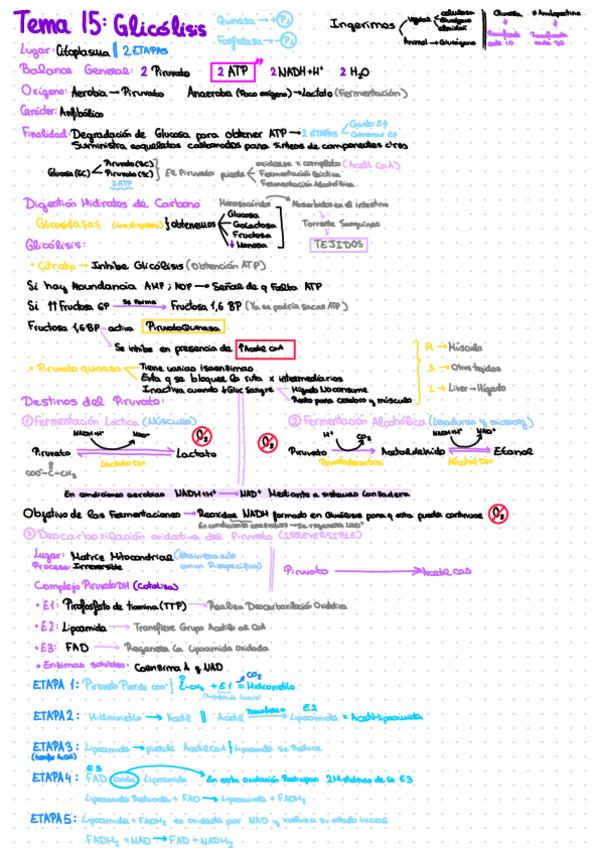 Tema 15: Glicólisis
Quinasa → + Pi
Fosfatasa → - Pi
Ingerimos
Vegetal
celulosa
Glucógeno
almidón
Animal → Glucógeno
Glucosa
Amilopectina
Ramificada cada 10
Ramificada cada 30
Lugar: Citoplasma || 2 ETAPAS
Balance General: 2 Piruvato 2 ATP 2 NADH+H⁺ 2 H₂O
Oxígeno: Aerobia → Piruvato Anaerobia (Poco oxígeno) → Lactato (Fermentación)
Carácter: Anfibólico
Finalidad: Degradación de Glucosa para obtener ATP → 2 ETAPAS
Gasto E†
Generar E†
Suministra esqueletos carbonados para síntesis de componentes clres
Glucosa (6C)
Piruvato (3C)
Piruvato (3C)
2 ATP
El Piruvato puede
oxidarse x completo (Acetil CoA)
Fermentación láctica
Fermentación Alcohólica
Digestión Hidratos de Carbono
Glucosidasas
obtenemos
Glucosa
Galactosa
Fructosa
Manosa
Monosacáridos → Absorbidos en el intestino
Torrente Sanguíneo
TEJIDOS
Glicólisis:
• Citrato → Inhibe Glicólisis (Obtención ATP)
Si hay Abundancia AMP; ADP → Señal de q Falta ATP
Si ↑↑ Fructosa 6P Se Forma → Fructosa 1,6 BP (Ya se podría sacar ATP)
Fructosa 1,6 BP activa PiruvatoQuinasa
Se inhibe en presencia de ↑Acetil CoA
• Piruvato quinasa
Tiene varias isoenzimas
Evita q se bloquee la ruta x intermediarios
Inactiva cuando ↓Glic Sangre
Hígado No consume
Resto para cerebro y músculo
M → Músculo
A → Otros tejidos
L → Liver → Hígado
Destinos del Piruvato:
① Fermentación Láctica (Músculo)
NADH+H⁺ NAD⁺
O₂
Piruvato Lactato
Lactato DH
COO⁻-C-CH₃
O
② Fermentación Alcohólica (Levaduras y microorg)
O₂
H⁺ CO₂ NADH+H⁺ NAD⁺
Piruvato → Acetaldehído Etanol
Alcohol DH
En condiciones aerobias NADH+H⁺ → NAD⁺ Mediante a sistemas lanzadera
Objetivo de las Fermentaciones → Reoxidar NADH formado en Glicólisis para q esta pueda continuar O₂
En condiciones anaerobias → Se regenera NAD⁺
③ Descarboxilación oxidativa del Piruvato (IRREVERSIBLE)
Lugar: Matriz Mitocondrial
Proceso: Irreversible
Piruvato → Acetil CoA
Complejo Piruvato DH (Cataliza)
• E1: Pirofosfato de tiamina (TTP) → Realiza Descarboxilación Oxidativa
• E2: Lipoamida → Transfiere Grupo Acetilo al CoA
• E3: FAD → Regenera la Lipoamida oxidada
• Enzimas solubles: Coenzima A y NAD
ETAPA 1: Piruvato Pierde COO⁻ } C-CH₃ + E1 = Hidroxietilo
O
CO₂
ETAPA 2: Hidroxietilo → Acetil || Acetil Transfiere → E2 Lipoamida = Acetil-Lipoamida
ETAPA 3: Lipoamida → puede Acetil CoA } Lipoamida se Reduce
ETAPA 4: E3 FAD Oxida Lipoamida → En esta oxidación Participan 2 Histidinas de la E3
Lipoamida Reducida + FAD → Lipoamida + FADH₂
ETAPA 5: Lipoamida + FADH₂ es oxidada por NAD y vuelve a su estado inicial
FADH₂ + NAD → FAD + NADH₂